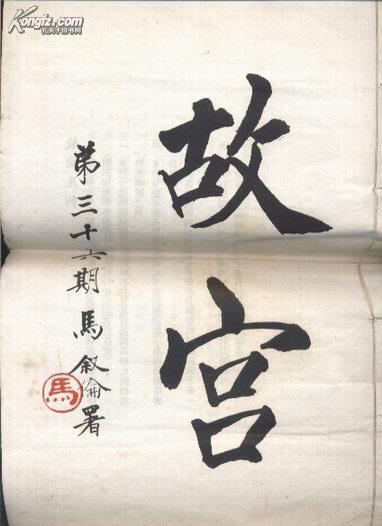 故宫
第三十六期馬叙倫署
馬
Kongfz.com
孔夫子旧书网